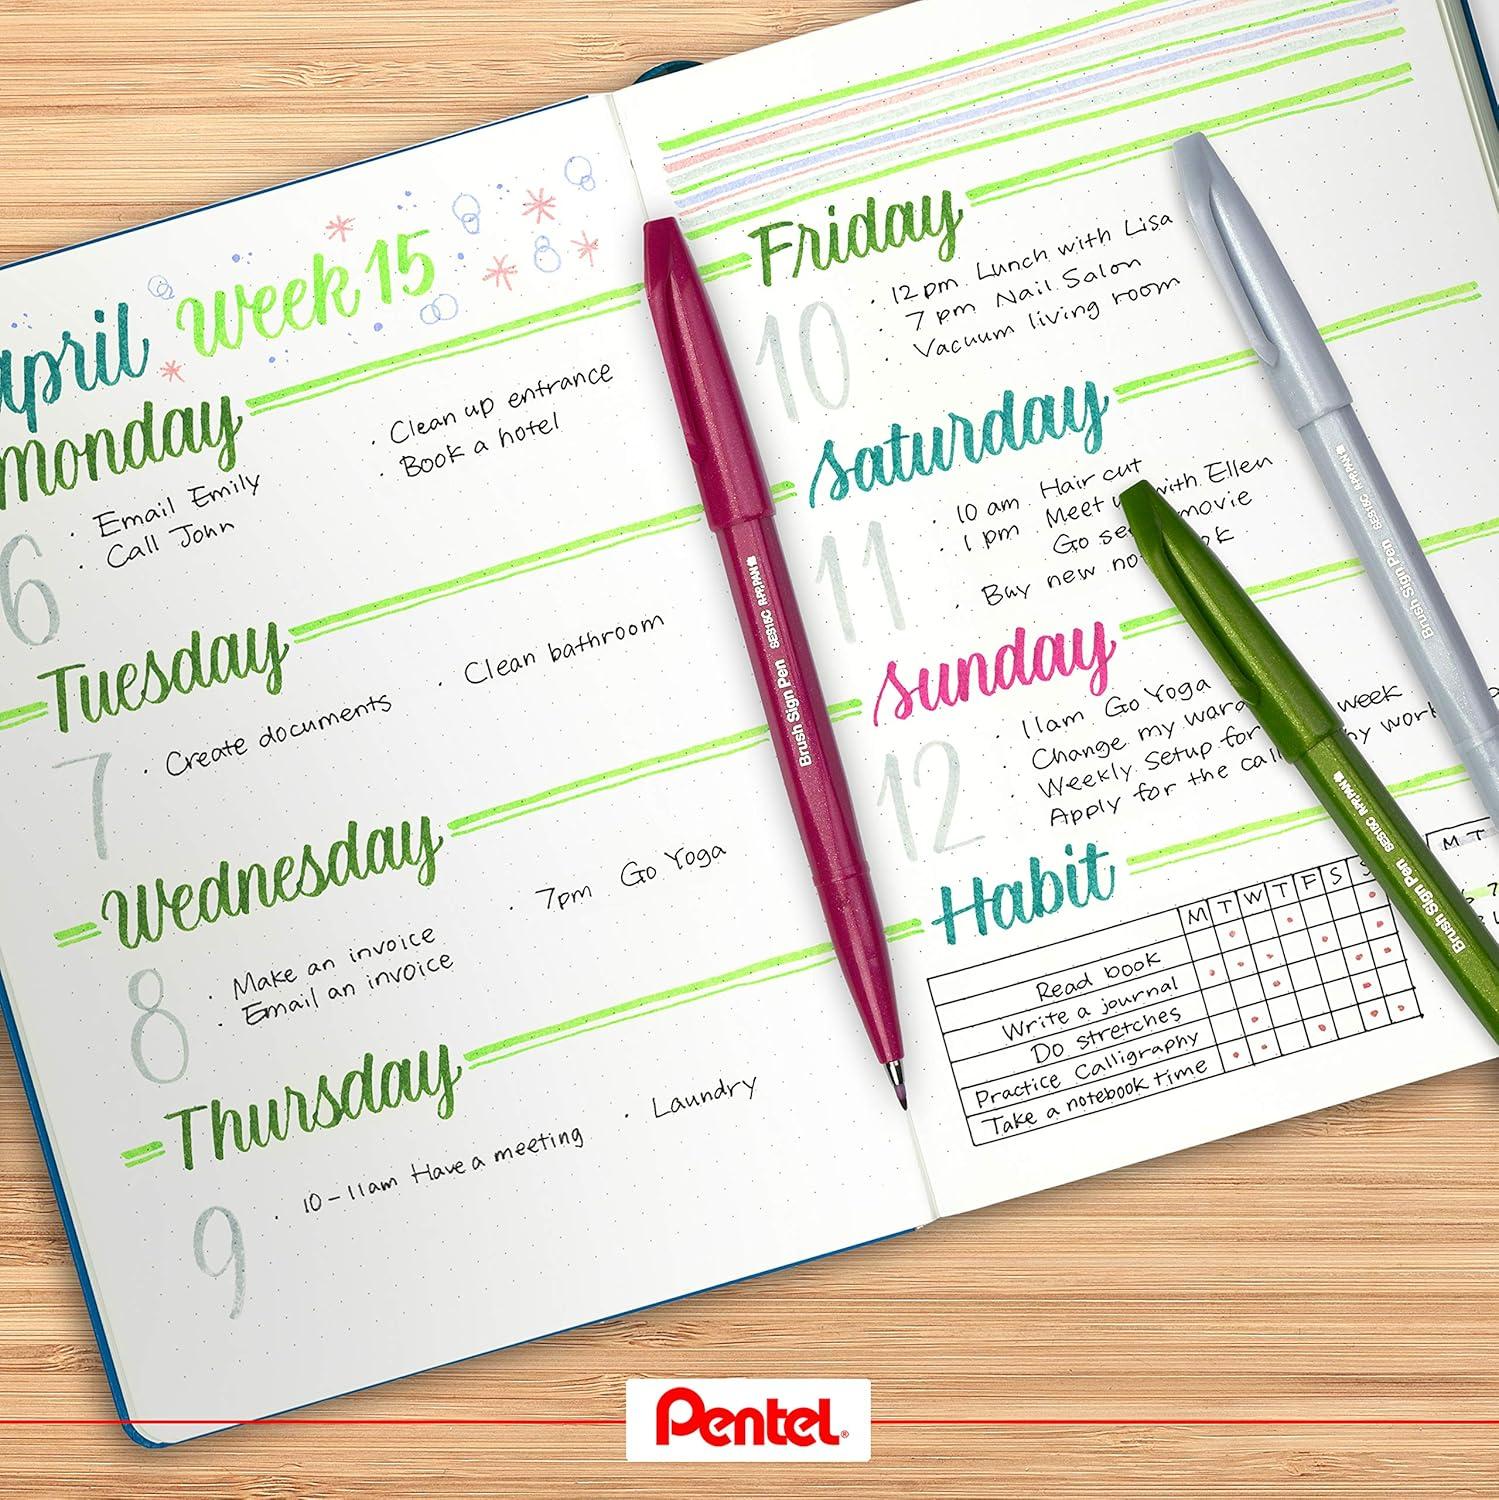 april Week 15
Monday
6
· Email Emily
· Call John
· Clean up entrance
· Book a hotel
Tuesday
7
· Create documents
· Clean bathroom
Wednesday
8
· Make an invoice
· Email an invoice
· 7pm Go Yoga
Thursday
9
· 10-11am Have a meeting
· Laundry
Friday
10
· 12pm Lunch with Lisa
· 7 pm Nail Salon
· Vacuum living room
Saturday
11
· 10 am Hair cut
· 1 pm Meet with Ellen
Go movie
· Buy new
Sunday
12
· 11am Go Yoga
· Change my week
· Weekly Setup for
· Apply for the
Habit
M T W T F S S
Read book
Write a journal
Do stretches
Practice Calligraphy
Take a notebook time
M T
Brush Sign Pen SES15C JAPAN
Brush Sign Pen SES15C JAPAN
Brush Sign Pen SES15C JAPAN
Pentel®